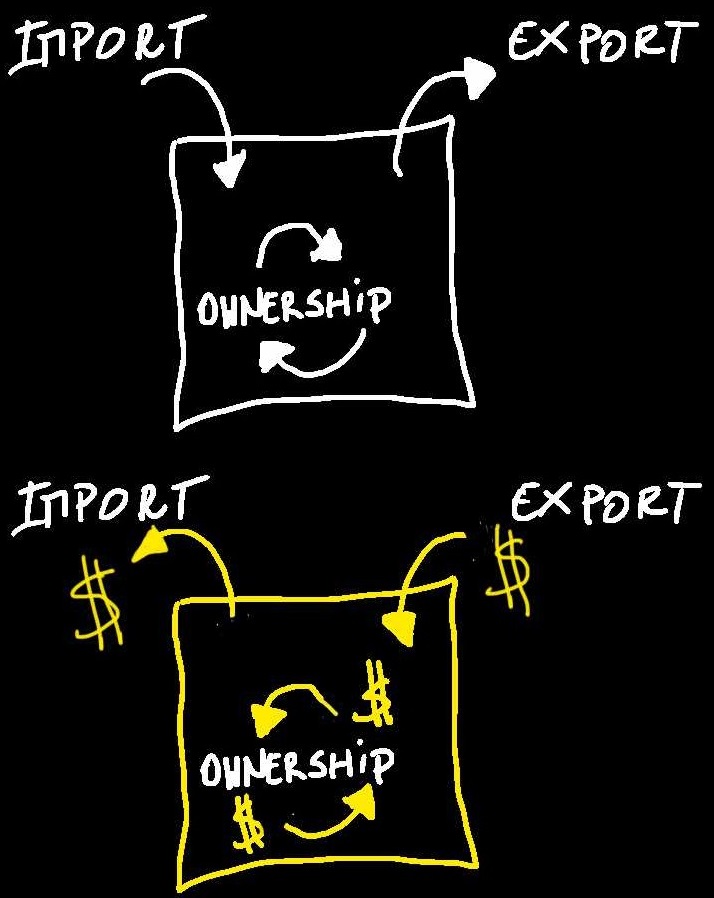 IMPORT
EXPORT
OWNERSHiP
IMPORT
EXPORT
$
$
$
OWNERSHiP
$